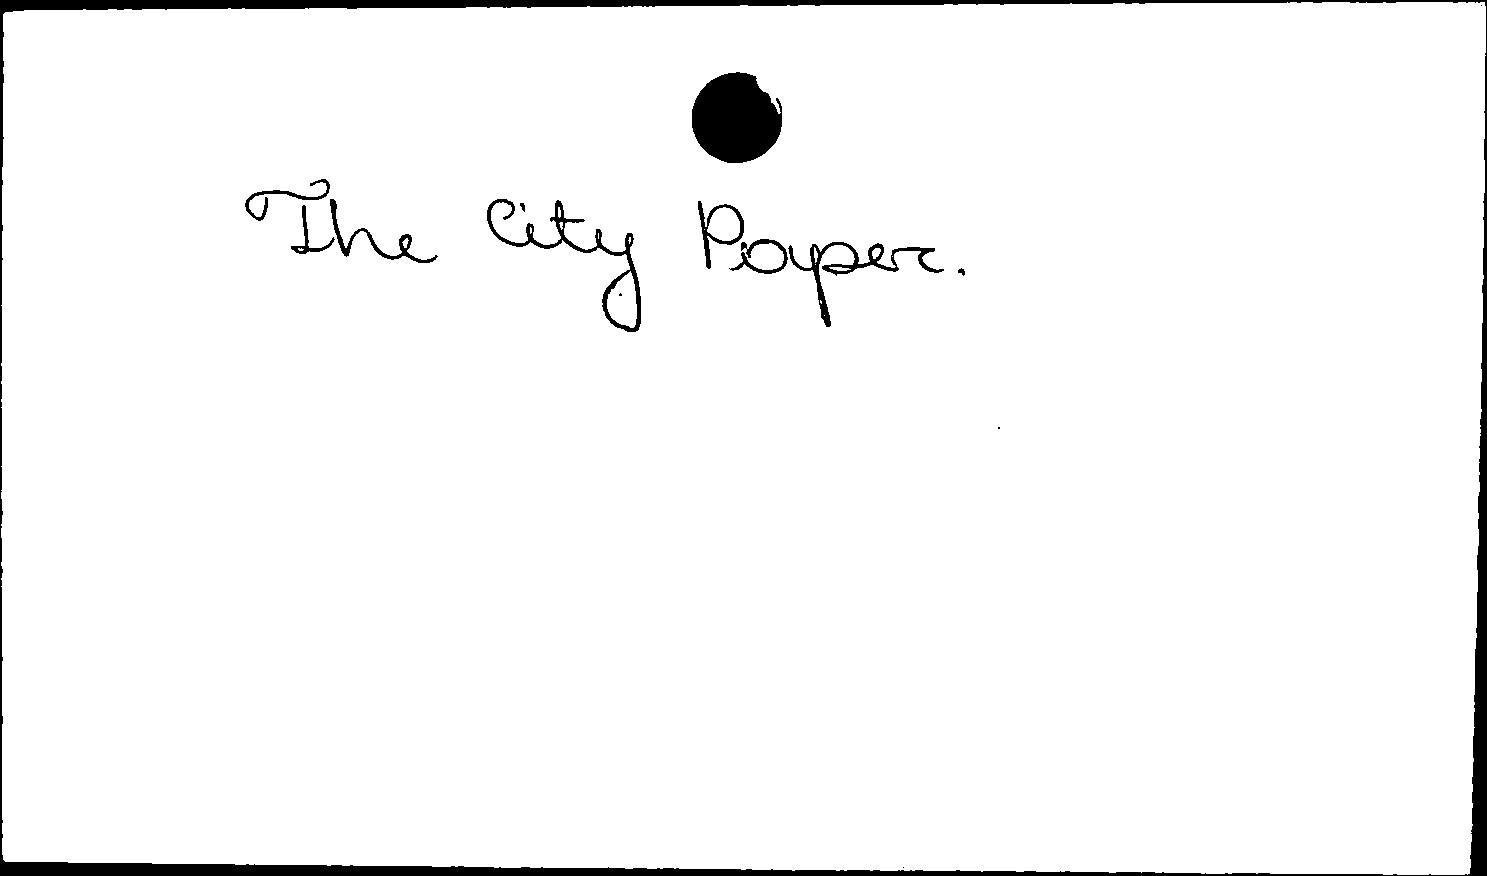 The City Paper.